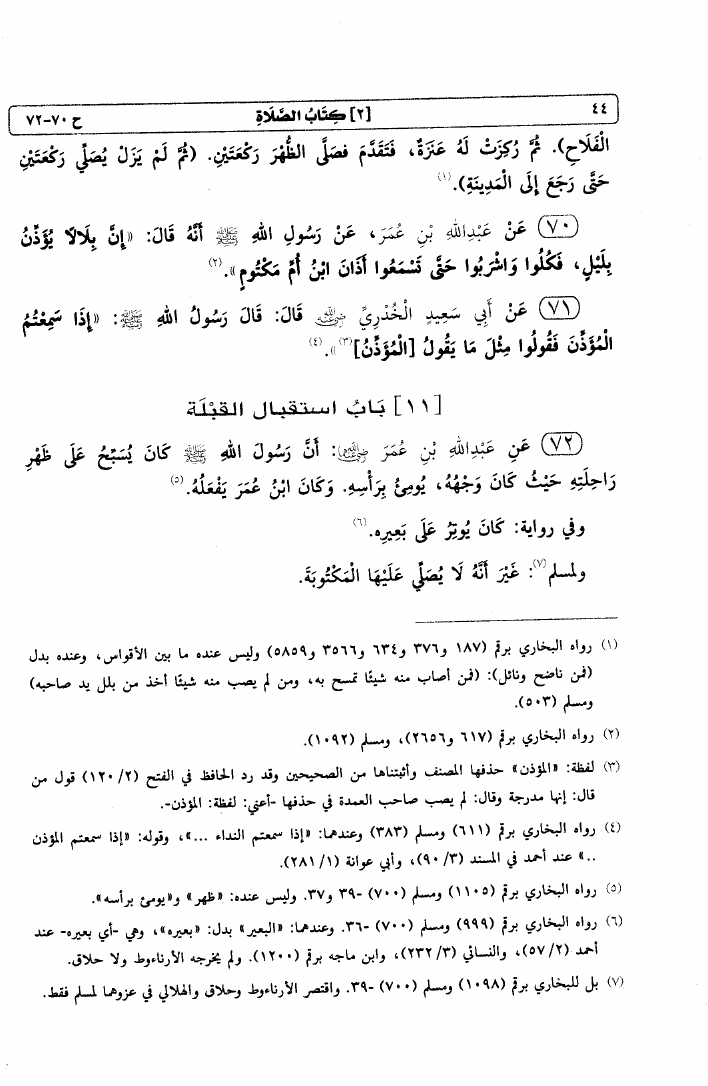 ٤٤ [٢] كِتَابُ الصَّلَاةِ ح ٧٠-٧٢
الْفَلَاحِ). ثُمَّ رُكِزَتْ لَهُ عَنَزَةٌ، فَتَقَدَّمَ فصَلَّى الظُّهْرَ رَكْعَتَيْنِ. (ثُمَّ لَمْ يَزَلْ يُصَلِّي رَكْعَتَيْنِ
حَتَّى رَجَعَ إِلَى الْمَدِينَةِ).(١)
(٧٠) عَنْ عَبْدِاللهِ بْنِ عُمَرَ، عَنْ رَسُولِ اللهِ ﷺ أَنَّهُ قَالَ: «إِنَّ بِلَالًا يُؤَذِّنُ
بِلَيْلٍ، فَكُلُوا وَاشْرَبُوا حَتَّى تَسْمَعُوا أَذَانَ ابْنُ أُمِّ مَكْتُومٍ».(٢)
(٧١) عَنْ أَبِي سَعِيدٍ الْخُدْرِيِّ رضي الله عنه قَالَ: قَالَ رَسُولُ اللهِ ﷺ: «إِذَا سَمِعْتُمُ
الْمُؤَذِّنَ فَقُولُوا مِثْلَ مَا يَقُولُ [الْمُؤَذِّنُ](٣)».(٤)
[١١] بَابُ استقبال القبْلَة
(٧٢) عَنِ عَبْدِاللهِ بْنِ عُمَرَ رضي الله عنهما: أَنَّ رَسُولَ اللهِ ﷺ كَانَ يُسَبِّحُ عَلَى ظَهْرِ
رَاحِلَتِهِ حَيْثُ كَانَ وَجْهُهُ، يُومِئُ بِرَأْسِهِ. وَكَانَ ابْنُ عُمَرَ يَفْعَلُهُ.(٥)
وفي رواية: كَانَ يُوتِرُ عَلَى بَعِيرِه.(٦)
ولمسلم(٧): غَيْرَ أَنَّهُ لَا يُصَلِّي عَلَيْهَا الْمَكْتُوبَةَ.
(١) رواه البخاري برقم (١٨٧ و٣٧٦ و٦٣٤ و٣٥٦٦ و٥٨٥٩) وليس عنده ما بين الأقواس، وعنده بدل
(فمن ناضح ونائل): (فمن أصاب منه شيئًا تمسح به، ومن لم يصب منه شيئًا أخذ من بلل يد صاحبه)
ومسلم (٥٠٣).
(٢) رواه البخاري برقم (٦١٧ و٢٦٥٦)، ومسلم (١٠٩٢).
(٣) لفظة: «المؤذن» حذفها المصنف وأثبتناها من الصحيحين وقد رد الحافظ في الفتح (٢/ ١٢٠) قول من
قال: إنها مدرجة وقال: لم يصب صاحب العمدة في حذفها -أعني: لفظة: المؤذن-.
(٤) رواه البخاري برقم (٦١١) ومسلم (٣٨٣) وعندهما: «إذا سمعتم النداء ...»، وقوله: «إذا سمعتم المؤذن
..» عند أحمد في المسند (٣/ ٩٠)، وأبي عوانة (١/ ٢٨١).
(٥) رواه البخاري برقم (١١٠٥) ومسلم (٧٠٠) -٣٩ و٣٧. وليس عنده: «ظهر» و«يومئ برأسه».
(٦) رواه البخاري برقم (٩٩٩) ومسلم (٧٠٠) -٣٦. وعندهما: «البعير» بدل: «بعيره»، وهي -أي بعيره- عند
أحمد (٢/ ٥٧)، والنسائي (٣/ ٢٣٢)، وابن ماجه برقم (١٢٠٠). ولم يخرجه الأرناءوط ولا حلاق.
(٧) بل للبخاري برقم (١٠٩٨) ومسلم (٧٠٠) -٣٩. واقتصر الأرناءوط وحلاق والهلالي في عزوهما لمسلم فقط.